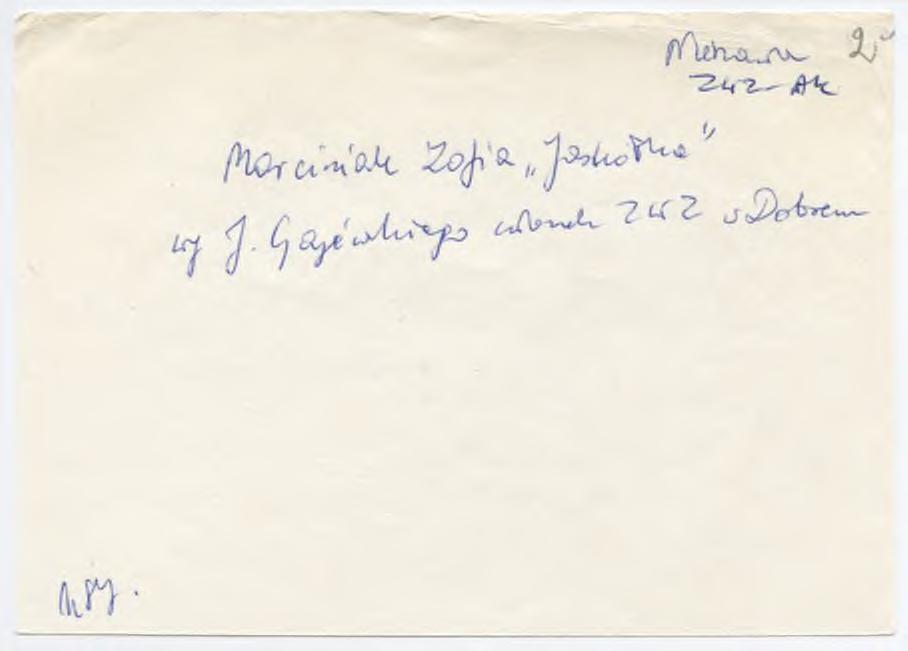 2
ZWZ-AK
Marciniak Zofia „Jaskółka”
wg J. Gajewskiego członek ZWZ w Dobrem